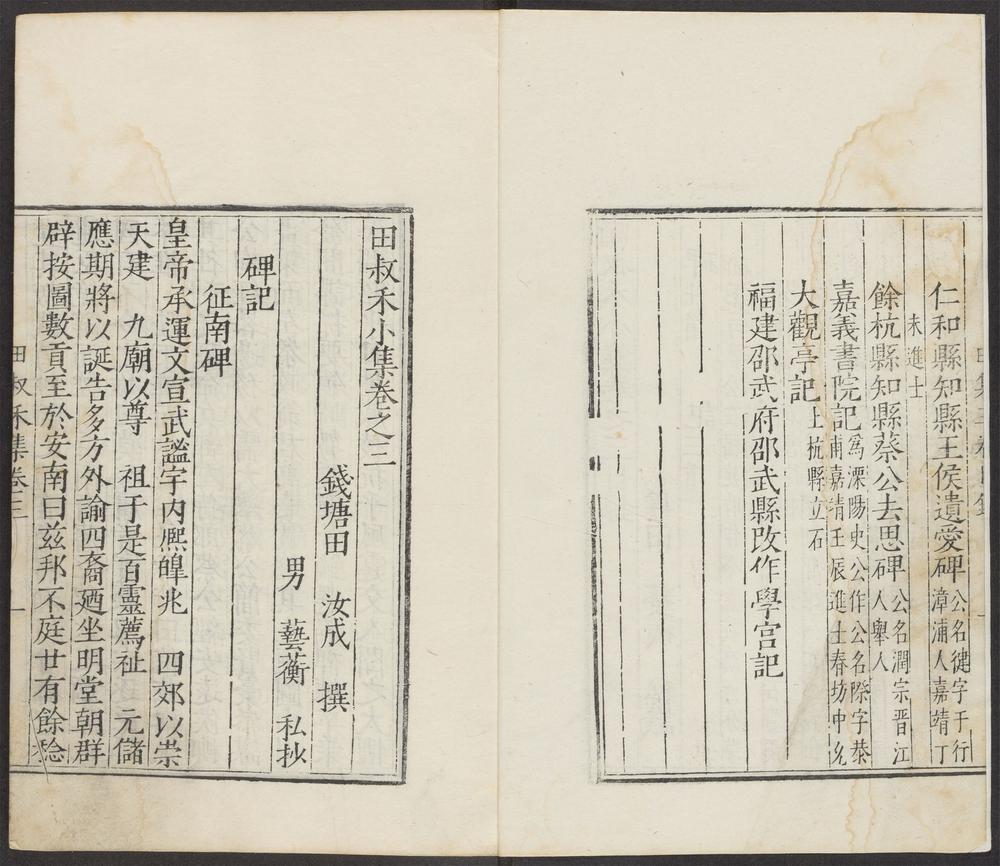 仁和縣知縣王侯遺愛碑公名健字于行漳浦人嘉靖丁
未進士
餘杭縣知縣蔡公去思碑公名潤宗晉江人舉人
嘉義書院記爲溧陽史公作公名際字恭甫嘉靖壬辰進士春坊中允
大觀亭記上杭縣立石
福建邵武府邵武縣改作學宫記
田叔禾小集卷之三
錢塘田 汝成 撰
男 藝蘅 私抄
碑記
征南碑
皇帝承運文宣武謐宇内熈皥兆 四郊以崇
天建 九廟以尊 祖于是百靈薦祉 元儲
應期將以誕告多方外諭四裔廼坐明堂朝群
辟按圖數貢至於安南曰兹邦不庭廿有餘稔
田叔禾集卷三
一